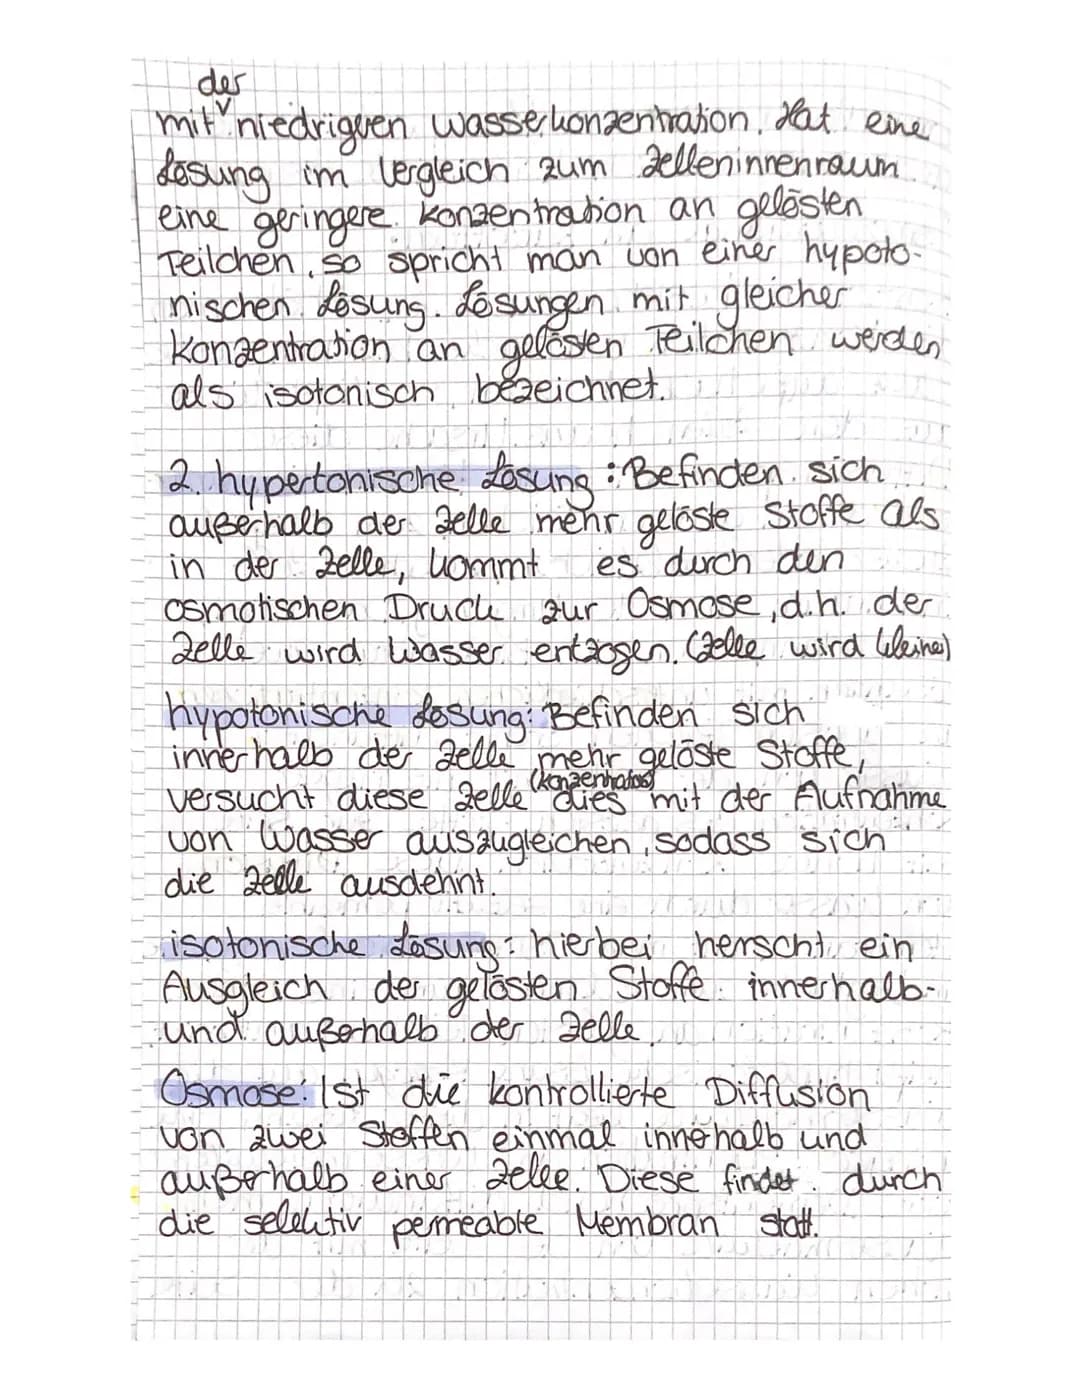 der
mit niedrigeren wasserkonzentration. Hat eine
Lösung im Vergleich zum Zelleninnenraum
eine geringere Konzentration an gelösten
Teilchen, so spricht man von einer hypoto-
nischen Lösung. Lösungen mit gleicher
Konzentration an gelösten Teilchen werden
als isotonisch bezeichnet.
2. hypertonische Lösung: Befinden sich
außerhalb der Zelle mehr gelöste Stoffe als
in der Zelle, kommt es durch den
osmotischen Druck zur Osmose, d.h. der
Zelle wird Wasser entzogen. (Zelle wird kleiner)
hypotonische Lösung: Befinden sich
innerhalb der Zelle mehr gelöste Stoffe,
(konzentration)
versucht diese Zelle dies mit der Aufnahme
von Wasser auszugleichen, sodass sich
die Zelle ausdehnt.
isotonische Lösung: hierbei herscht ein
Ausgleich der gelösten Stoffe innerhalb-
und außerhalb der Zelle.
Osmose: Ist die kontrollierte Diffusion
von zwei Stoffen einmal innerhalb und
außerhalb einer Zelle. Diese findet durch
die selektiv permeable Membran statt.